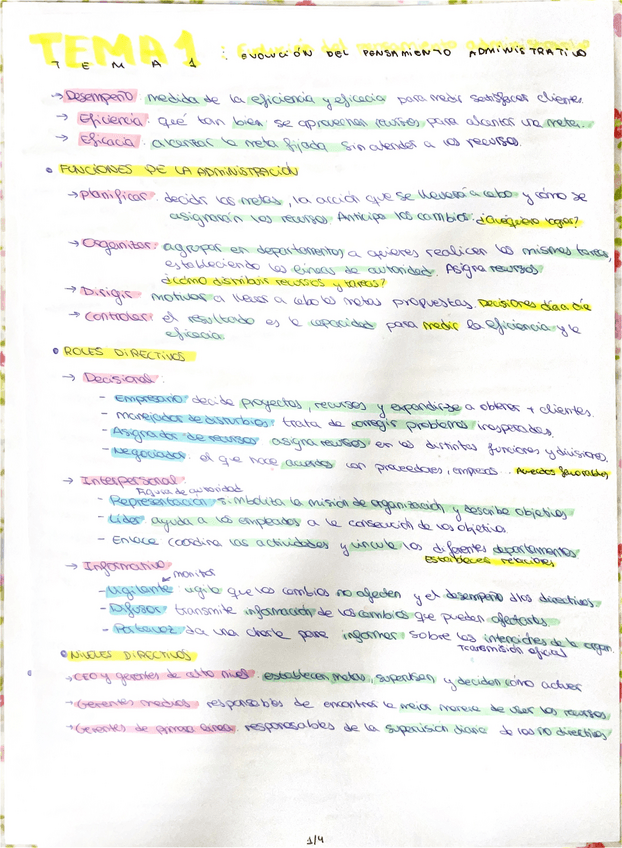 TEMA 1 : EVOLUCIÓN DEL PENSAMIENTO ADMINISTRATIVO
→ Desempeño: medida de la eficiencia y eficacia para medir satisfacer clientes.
→ Eficiencia: qué tan bien se aprovechan recursos para alcanzar una meta.
→ Eficacia: alcanzar la meta fijada sin atender a los recursos.
• FUNCIONES DE LA ADMINISTRACIÓN
→ Planificar: decidir las metas, la acción que se llevará a cabo y cómo se
asignarán los recursos. Anticipa los cambios. ¿Qué quiero lograr?
→ Organizar: agrupar en departamentos a quienes realicen las mismas tareas,
estableciendo las líneas de autoridad. Asigna recursos
¿cómo distribuir recursos y tareas?
→ Dirigir: motivar a llevar a cabo las metas propuestas. Decisiones día a día
→ Controlar: el resultado es la capacidad para medir la eficiencia y la
eficacia.
• ROLES DIRECTIVOS
→ Decisional:
- Empresario: decide proyectos, recursos y expandirse a obtener + clientes.
- Manejador de disturbios: trata de corregir problemas inesperados.
- Asignador de recursos: asigna recursos en las distintas funciones y divisiones.
- Negociador: el que hace acuerdos con proveedores, empresas. Acuerdos favorables
→ Interpersonal:
Figura de autoridad
- Representación: simboliza la misión de organización y describe objetivos
- Líder: ayuda a los empleados a la consecución de los objetivos.
- Enlace: coordina las actividades y vincula los diferentes departamentos
Establecer relaciones
→ Informativo:
monitor
- Vigilante: vigila que los cambios no afecten y el desempeño d los directivos
- Difusor: transmite información de los cambios que puedan afectarles
- Portavoz: da una charla para informar sobre las intenciones de la organ.
Transmisión oficial
• NIVELES DIRECTIVOS
→ CEO y gerentes de alto nivel: establecer metas, supervisan y deciden cómo actuar
→ Gerentes medios: responsables de encontrar la mejor manera de usar los recursos
→ Gerentes de primera línea: responsables de la supervisión diaria de los no directivos
1/4